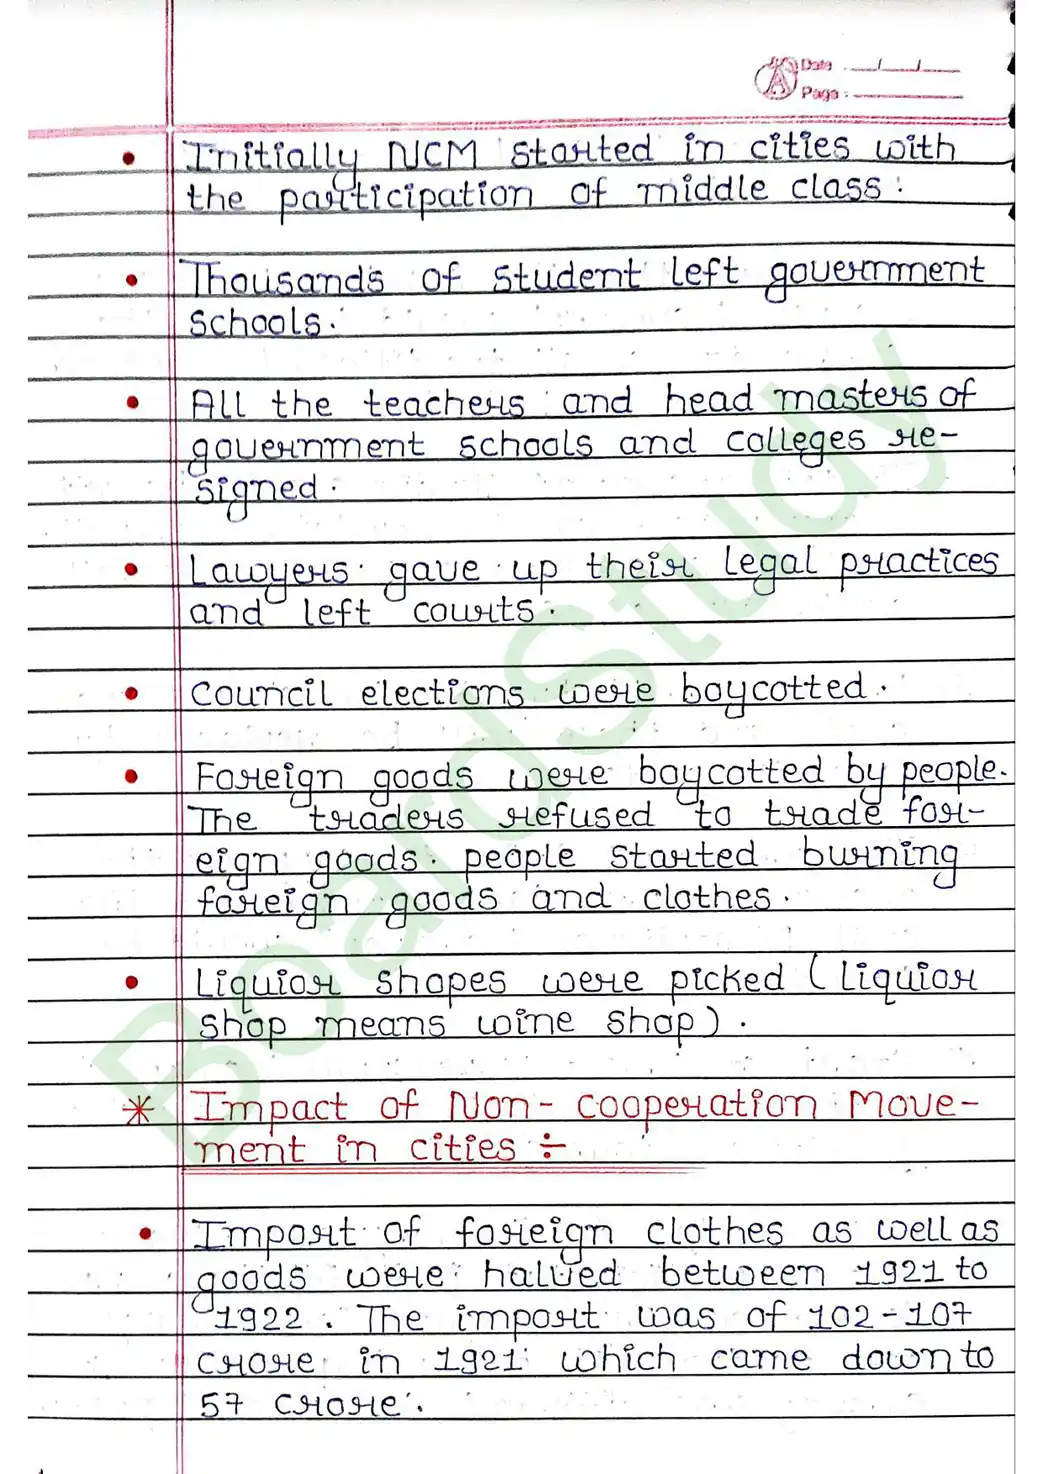 Date : __/__/__
Page : ______
• Initially NCM started in cities with
the participation of middle class.
• Thousands of student left government
schools.
• All the teachers and head masters of
government schools and colleges re-
signed.
• Lawyers gave up their legal practices
and left courts.
• Council elections were boycotted.
• Foreign goods were boycotted by people.
The traders refused to trade for-
eign goods. people started burning
foreign goods and clothes.
• Liquior shapes were picked (Liquior
shop means wine shop).
* Impact of Non-cooperation Move-
ment in cities ÷
• Import of foreign clothes as well as
goods were halved between 1921 to
1922. The import was of 102-107
crore in 1921 which came down to
57 crore.
BoardStudy